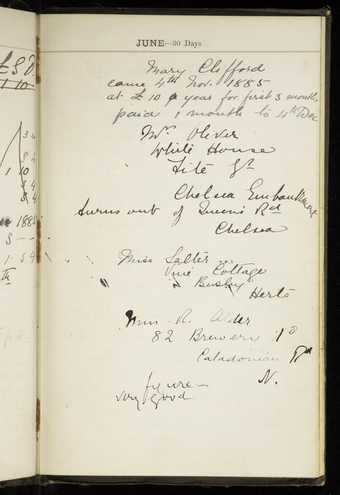 JUNE—30 Days
Mary Clifford
came 4th Nov. 1885
at £10 p year for first 3 months
paid 1 month to 4th Dec
Mr. Oliver
White House
Tite St
Chelsea Embankment
turns out of Queens Rd
Chelsea
Miss Salter
Pine Cottage
Bushey
Herts
Miss R. Alder
82 Brewery
Caladonian Rd
N.
figure—
very good